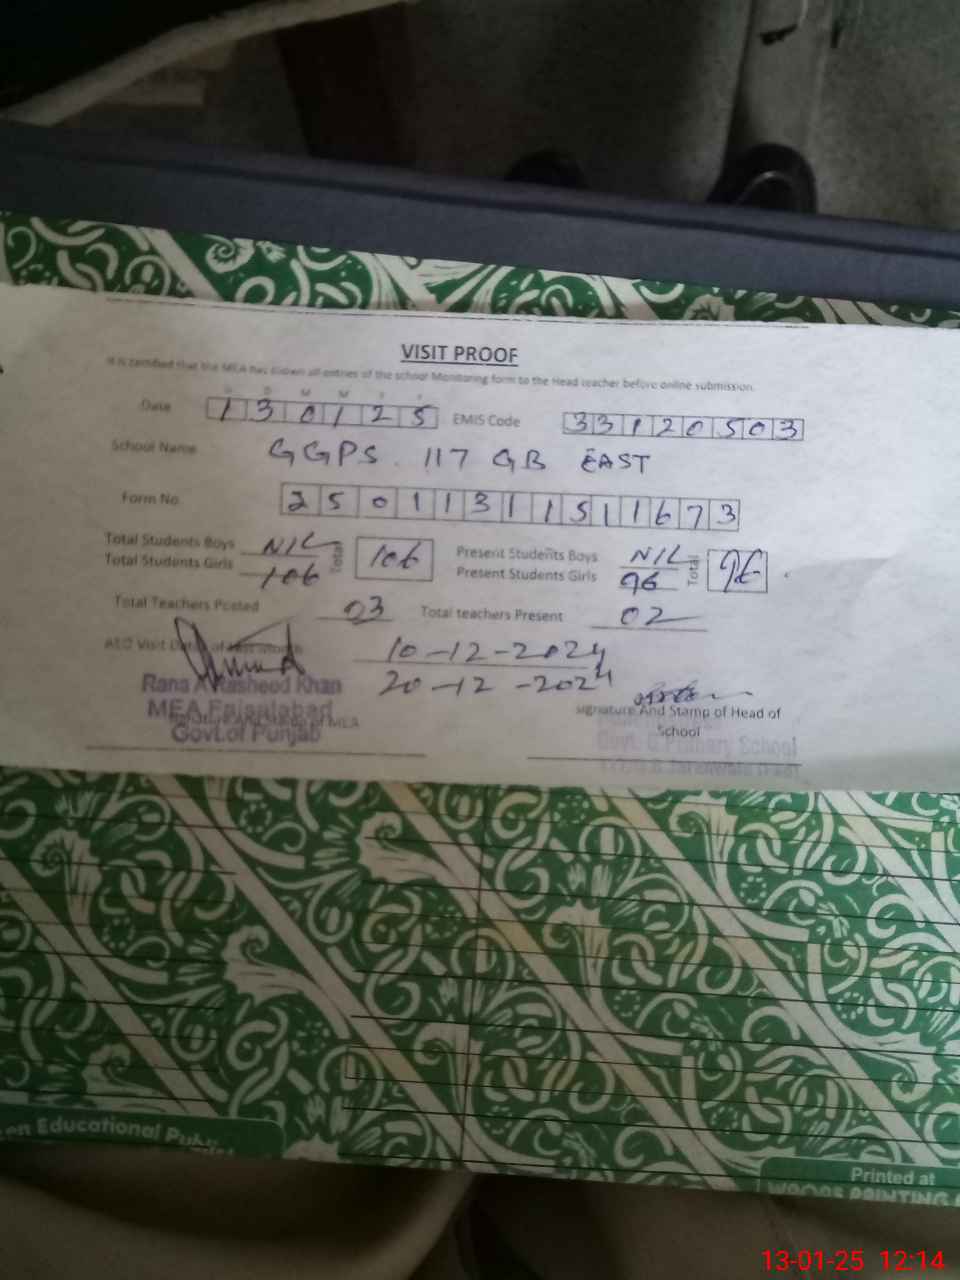 VISIT PROOF
It is certified that the MEA has shown all entries of the school Monitoring form to the Head teacher before online submission.
D D M M Y Y
Date 1 3 0 1 2 5 EMIS Code 3 3 1 2 0 5 0 3
School Name GGPS. 117 GB EAST
Form No 2 5 0 1 1 3 1 1 5 1 1 6 7 3
Total Students Boys NIL Total 106 Present Students Boys NIL Total 96
Total Students Girls 106 Present Students Girls 96
Total Teachers Posted 03 Total teachers Present 02
AEO Visit 10-12-2024
20-12-2024
Rana A Rasheed Khan
MEA Faisalabad
Govt.of Punjab
signature And Stamp of Head of
School
Govt. G.Primary School
en Educational
Printed at
PRINTING
13-01-25 12:14